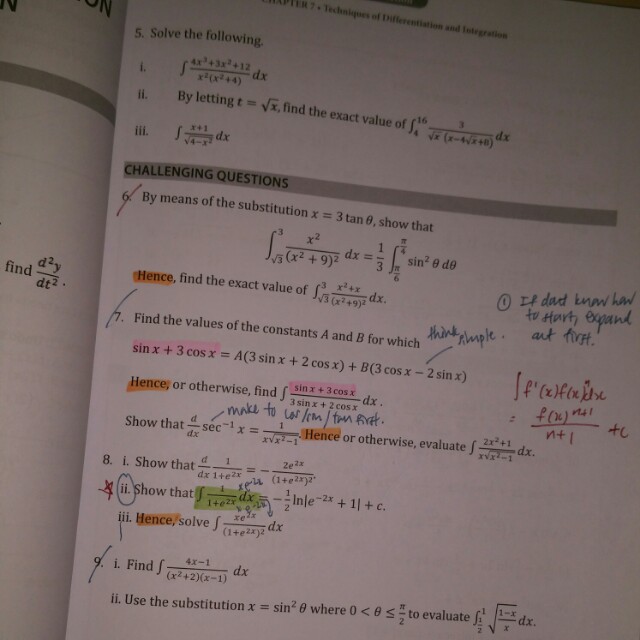 ON
CHAPTER 7 • Techniques of Differentiation and Integration
5. Solve the following.
i. ∫ (4x³+3x²+12)/(x²(x²+4)) dx
ii. By letting t = √x, find the exact value of ∫₄¹⁶ 3/(√x (x−4√x+8)) dx
iii. ∫ (x+1)/√(4−x²) dx
CHALLENGING QUESTIONS
6. By means of the substitution x = 3 tan θ, show that
∫_√3^3 x²/(x² + 9)² dx = 1/3 ∫_(π/6)^(π/4) sin² θ dθ
find d²y/dt².
Hence, find the exact value of ∫_√3^3 (x²+x)/(x²+9)² dx.
① If dont know how
to start, expand
out first.
7. Find the values of the constants A and B for which
think simple.
sin x + 3 cos x = A(3 sin x + 2 cos x) + B(3 cos x − 2 sin x)
Hence, or otherwise, find ∫ (sin x + 3 cos x)/(3 sin x + 2 cos x) dx.
∫f'(x)f(x)ⁿdx
= f(x)ⁿ⁺¹/(n+1) + c
make to cos/sin/tan first.
Show that d/dx sec⁻¹ x = 1/(x√(x²−1)). Hence or otherwise, evaluate ∫ (2x²+1)/(x√(x²−1)) dx.
8. i. Show that d/dx 1/(1+e²ˣ) = − 2e²ˣ/(1+e²ˣ)².
ii. Show that ∫ 1/(1+e²ˣ) dx = −1/2 ln|e⁻²ˣ + 1| + c.
iii. Hence, solve ∫ xe²ˣ/(1+e²ˣ)² dx
9. i. Find ∫ (4x−1)/((x²+2)(x−1)) dx
ii. Use the substitution x = sin² θ where 0 < θ ≤ π/2 to evaluate ∫_(1/2)^1 √((1−x)/x) dx.